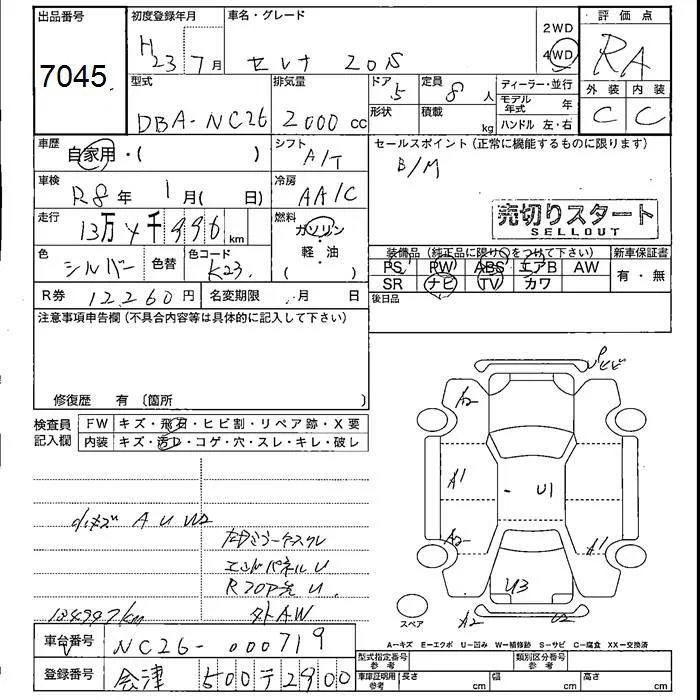 出品番号
7045
初度登録年月
H23 7月
車名・グレード
セレナ 20S
2WD
4WD
評価点
RA
外装 内装
C C
型式
DBA-NC26
排気量
2000 cc
ドア 5
形状
定員 8 人
積載 kg
ディーラー・並行
モデル年式 年
ハンドル 左・右
車歴
自家用・( )
シフト
A/T
セールスポイント(正常に機能するものに限ります)
B/M
車検
R8年 1月( 日)
冷房
AA/C
売切りスタート
SELLOUT
走行
13万4千996km
燃料
ガソリン
軽・油
( )
色
シルバー
色替
色コード
K23
装備品(純正品に限り○をつけて下さい)
PS PW ABS エアB AW
SR ナビ TV カワ
新車保証書
有・無
後日品
R券 12260円
名変期限 月 日
注意事項申告欄(不具合内容等は具体的に記入して下さい)
修復歴 有 〔箇所 〕
検査員記入欄
FW キズ・飛石・ヒビ割・リペア跡・X要
内装 キズ・汚れ・コゲ・穴・スレ・キレ・破レ
小キズ A U W2
エンドパネル U
外AW
134997km
A2
A1
U1
A2
A1
U3
A2
U2
スペア
A-キズ E-エクボ U-凹み W-補修跡 S-サビ C-腐食 XX-交換済
車台番号
NC26-000719
登録番号
会津 500 テ 2900
型式指定番号 参考
類別区分番号 参考
車庫証明用 参考
長さ cm
幅 cm
高さ cm